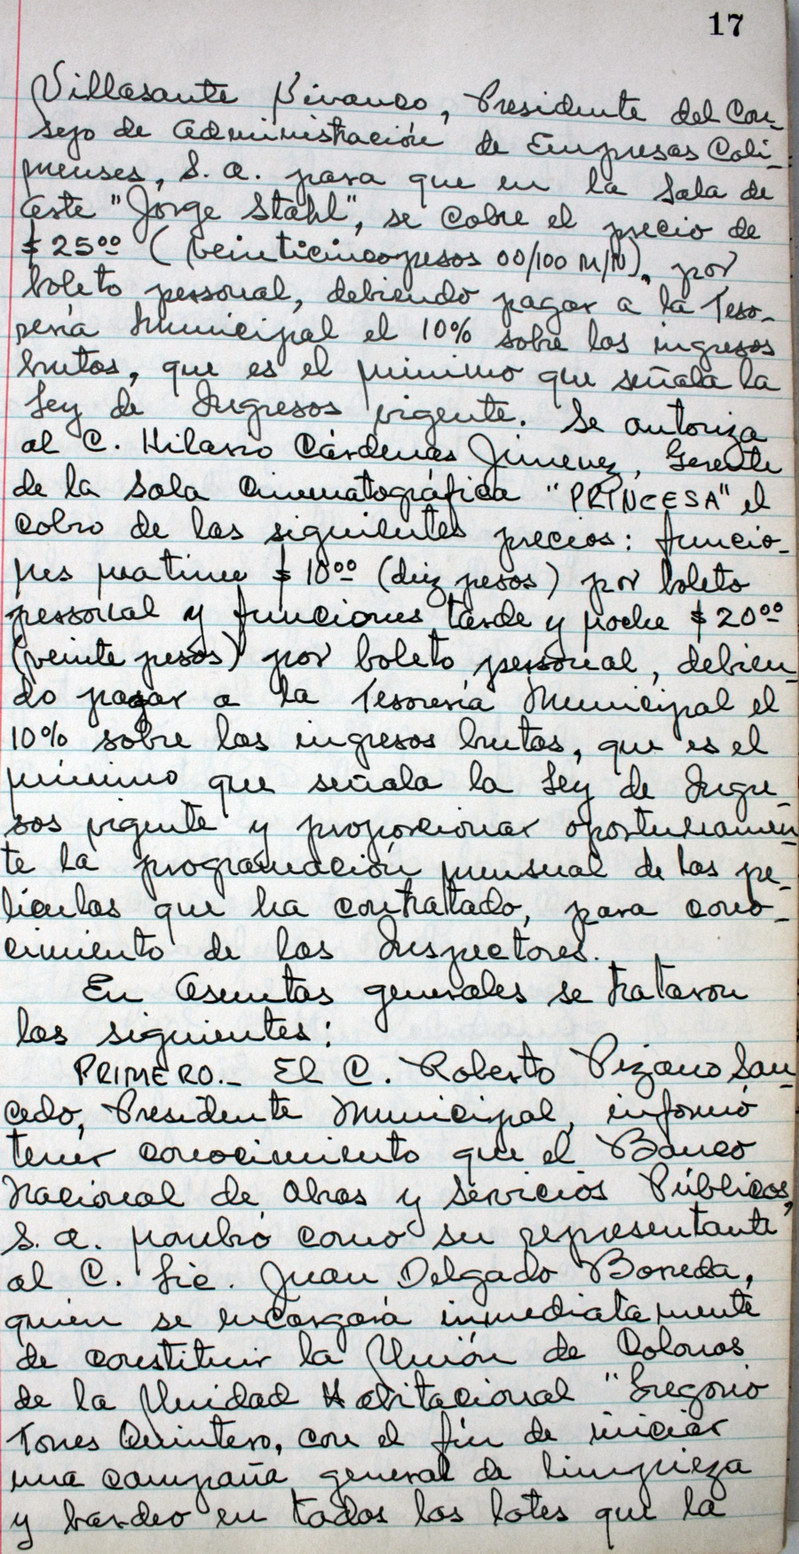 17
Villasante Vivanco, Presidente del Con-
sejo de Administración de Empresas Coli-
menses, S. A. para que en la Sala de
Arte "Jorge Stahl", se cobre el precio de
$ 25⁰⁰ (veinticinco pesos 00/100 M/N), por
boleto personal, debiendo pagar a la Teso-
rería Municipal el 10% sobre los ingresos
brutos, que es el mínimo que señala la
Ley de Ingresos vigente. Se autoriza
al C. Hilario Cárdenas Jiménez, Gerente
de la Sala Cinematográfica "PRINCESA" el
cobro de los siguientes precios: funcio-
nes matinee $ 10⁰⁰ (diez pesos) por boleto
personal y funciones tarde y noche $ 20⁰⁰
(veinte pesos) por boleto personal, debien-
do pagar a la Tesorería Municipal el
10% sobre los ingresos brutos, que es el
mínimo que señala la Ley de Ingre-
sos vigente y proporcionar oportunamen-
te la programación mensual de las pe-
lículas que ha contratado, para cono-
cimiento de los Inspectores.
En Asuntos generales se trataron
los siguientes:
PRIMERO.- El C. Roberto Pizano Sau-
cedo, Presidente Municipal, informó
tener conocimiento que el Banco
Nacional de Obras y Servicios Públicos,
S. A. nombró como su representante
al C. Lic. Juan Delgado Boneda,
quien se encargará inmediatamente
de constituir la Unión de Colonos
de la Unidad Habitacional "Gregorio
Torres Quintero, con el fin de iniciar
una campaña general de limpieza
y bardeo en todos los lotes que la